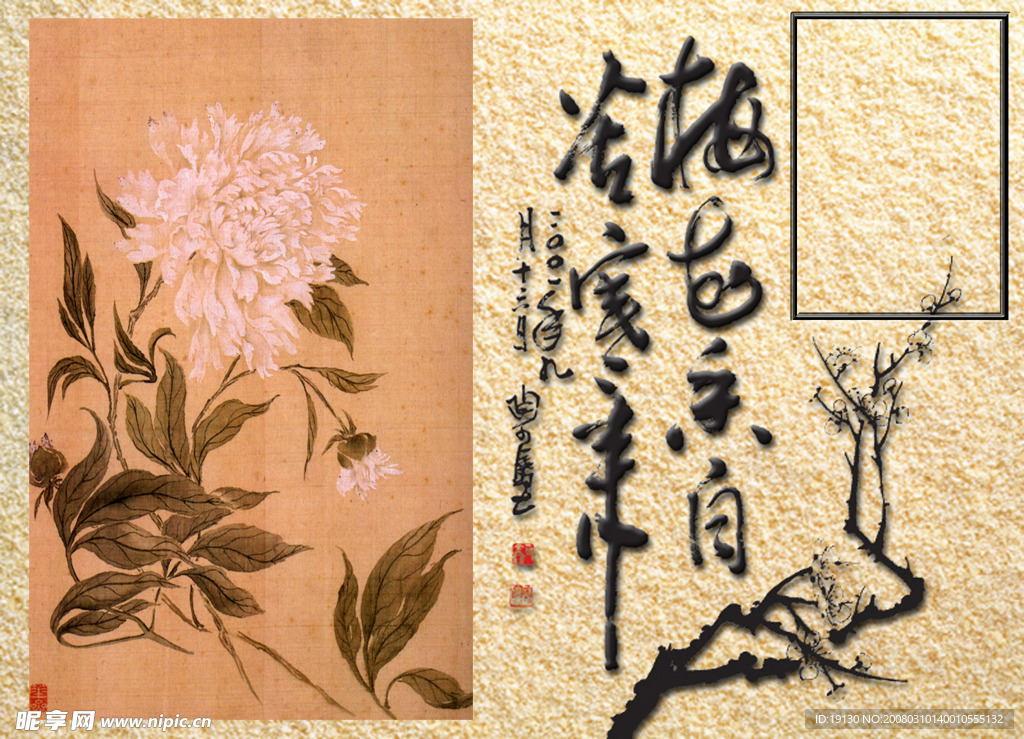 梅花香自
苦寒来
二〇〇一年九
月十二日
昵享网 www.nipic.cn
ID:19130 NO:20080310140010555132